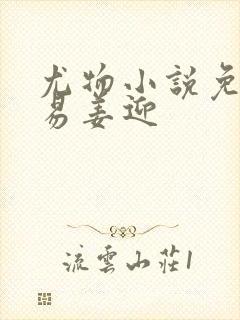 尤物小说免
易姜迎
流雲山莊1